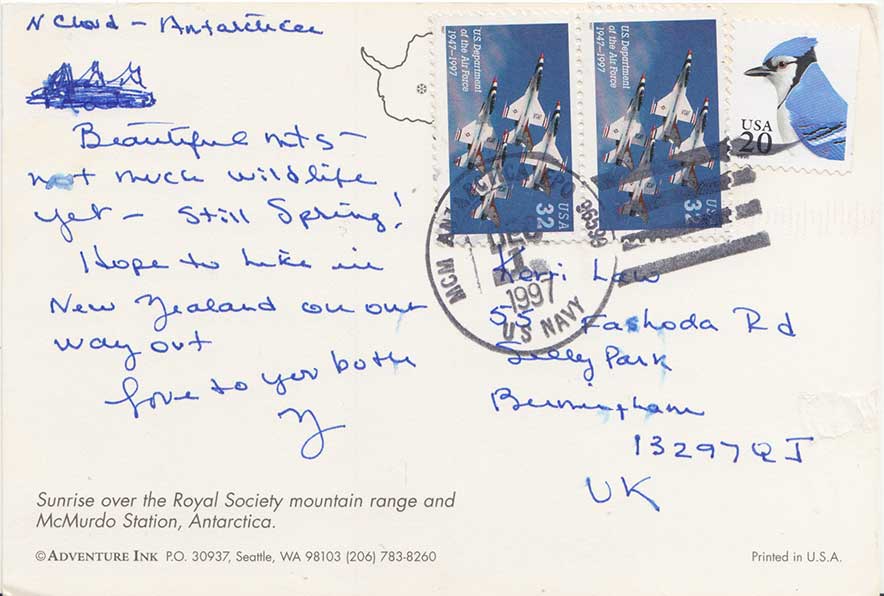 N Chord - Antarctica
Beautiful mts -
not much wildlife
yet - still Spring!
Hope to hike in
New Zealand on our
way out
Love to you both
Y
Sunrise over the Royal Society mountain range and
McMurdo Station, Antarctica.
©ADVENTURE INK P.O. 30937, Seattle, WA 98103 (206) 783-8260
U.S. Department
of the Air Force
1947-1997
USA
32
U.S. Department
of the Air Force
1947-1997
USA
32
USA
20
MCM ANTARCTICA FPO 96599
DEC
1
1997
US NAVY
Kerri Law
55 Fashoda Rd
Selly Park
Birmingham
B297QJ
UK
Printed in U.S.A.